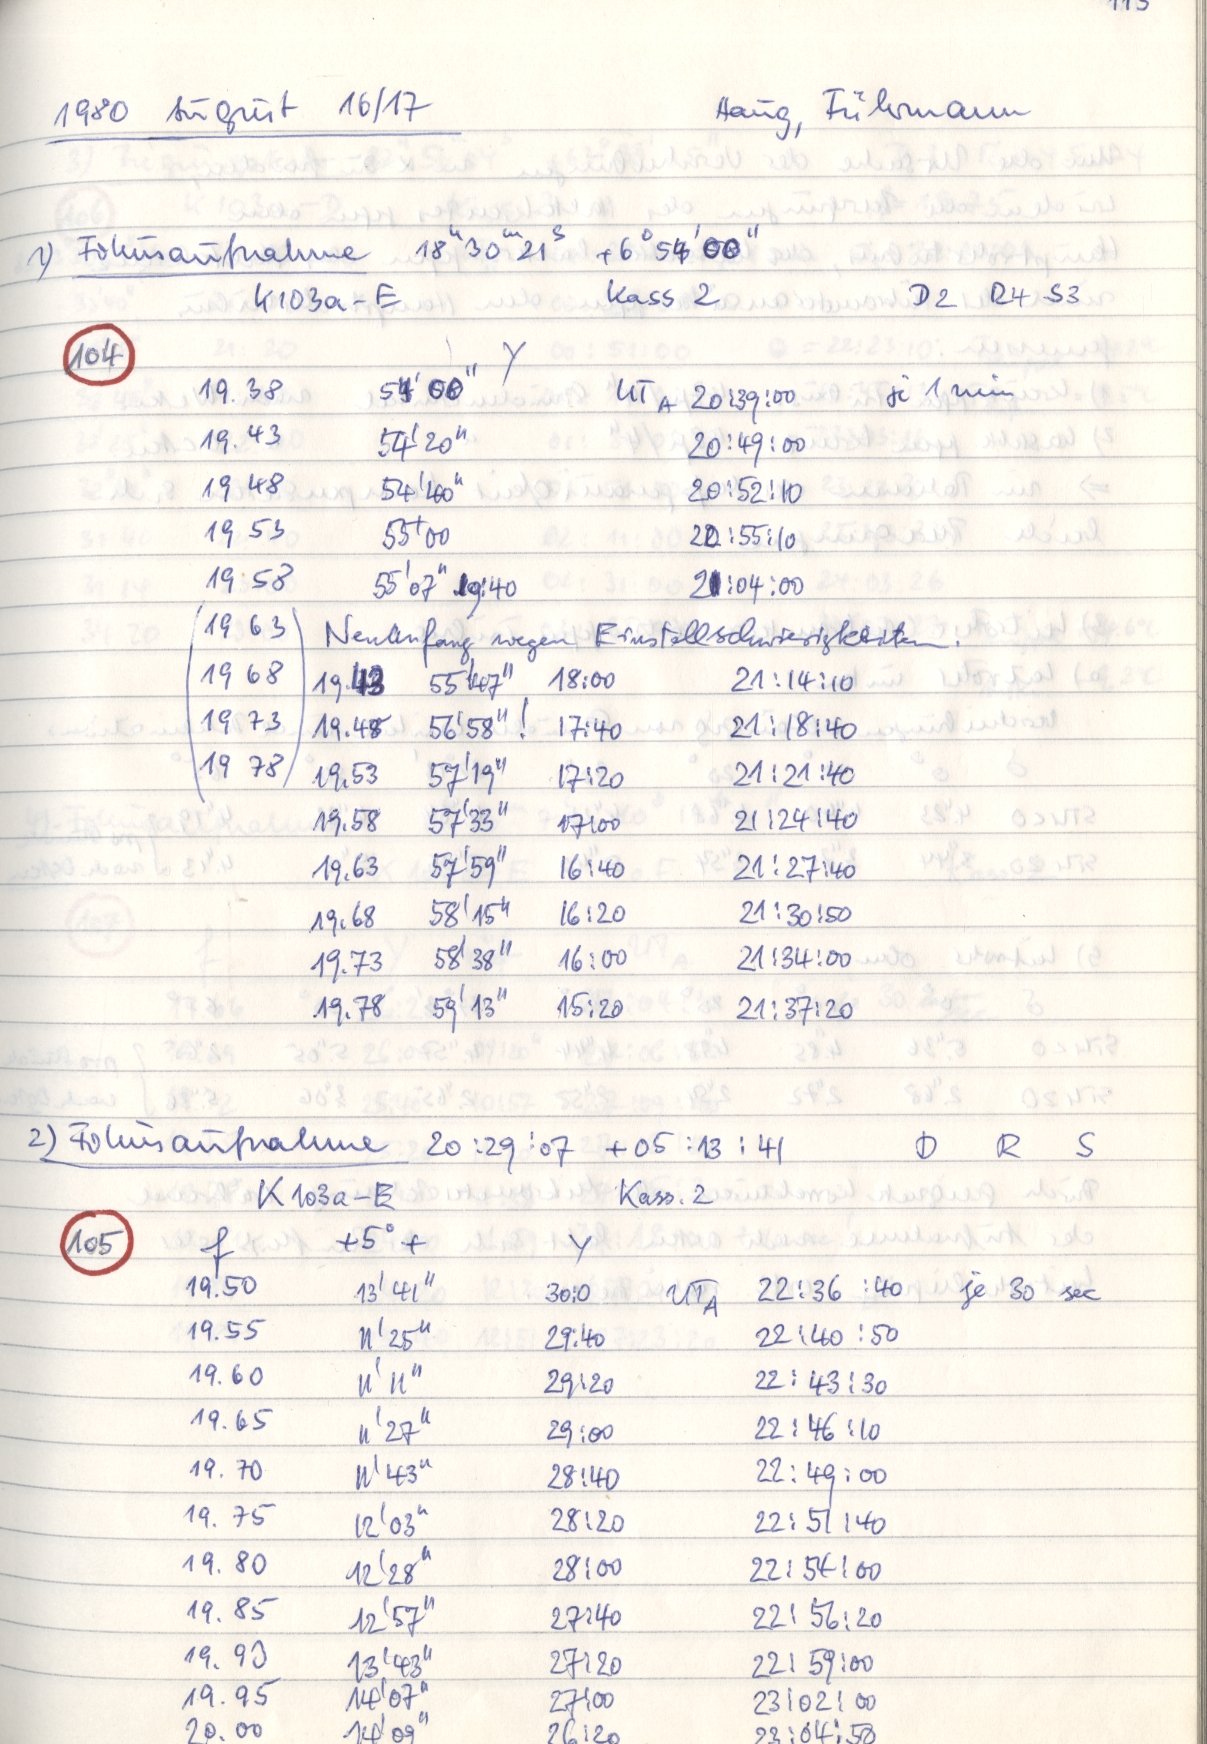 113
1980 August 16/17 Haug, Fuhrmann
1) Fokusaufnahme 18h 30m 21s +6° 54' 00"
K103a-E Kass 2 D2 R4 S3
104 Y
19.38 54' 00" UTA 20:39:00 je 1 min
19.43 54'20" 20:49:00
19.48 54'40" 20:52:10
19.53 55'00 20:55:10
19.58 55'07" 19:40 21:04:00
19 63 Neuanfang wegen Einstellschwierigkeiten.
19 68 19.43 55'47" 18:00 21:14:10
19 73 19.48 56'58"! 17:40 21:18:40
19 78 19.53 57'19" 17:20 21:21:40
19.58 57'33" 17:00 21:24:40
19.63 57'59" 16:40 21:27:40
19.68 58'15" 16:20 21:30:50
19.73 58'38" 16:00 21:34:00
19.78 59'13" 15:20 21:37:20
2) Fokusaufnahme 20:29:07 +05:13:41 D R S
K103a-E Kass. 2
105 f +5° + Y
19.50 13'41" 30:0 UTA 22:36:40 je 30 sec
19.55 11'25" 29:40 22:40:50
19.60 11'11" 29:20 22:43:30
19.65 11'27" 29:00 22:46:10
19.70 11'43" 28:40 22:49:00
19.75 12'03" 28:20 22:51:40
19.80 12'28" 28:00 22:54:00
19.85 12'57" 27:40 22:56:20
19.90 13'43" 27:20 22:59:00
19.95 14'07" 27:00 23:02:00
20.00 14'09" 26:20 23:04:50